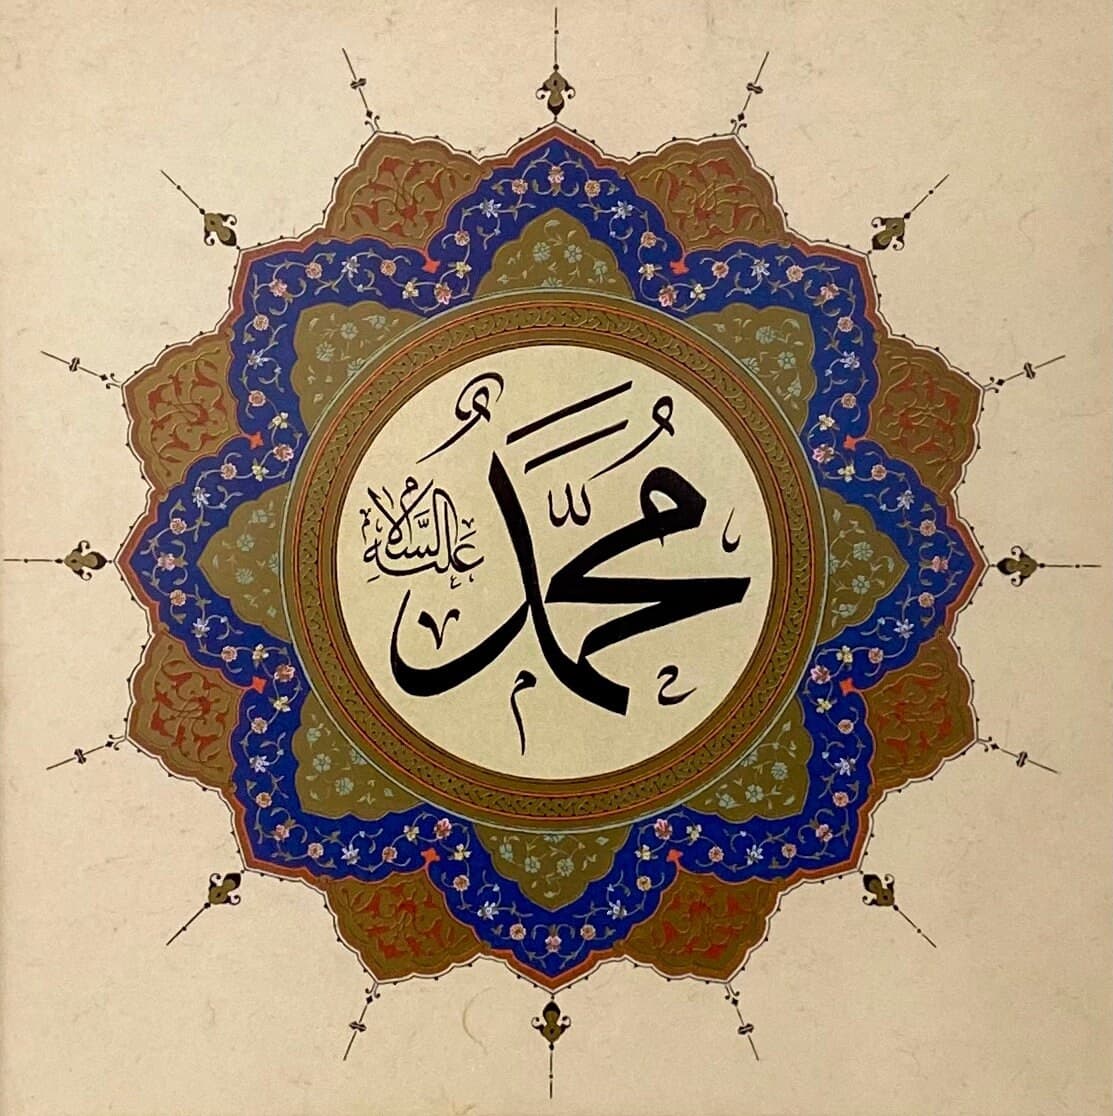 مُحَمَّدٌ
عَلَيْهِ السَّلَام